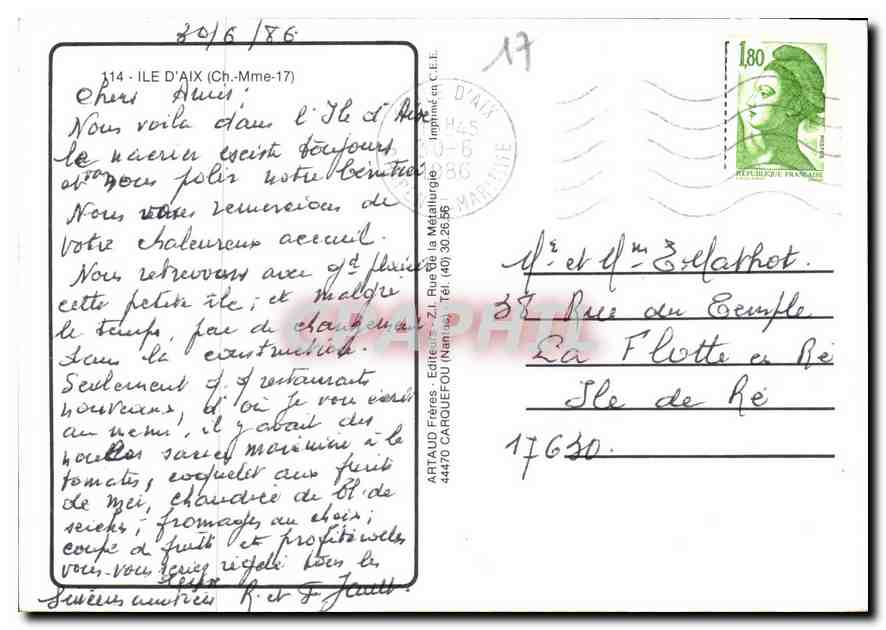 30/6/86
17
114 - ILE D'AIX (Ch.-Mme-17)
Chers Amis,
Nous voila dans l'Ile d'Aix
le nacrier existe toujours
et nous polir notre bénitier
Nous vous remercions de
votre chaleureux accueil.
Nous retrouvons avec gd plaisir
cette petite île, et malgré
le temps, peu de changement
dans la construction.
Seulement q.q restaurants
nouveaux, d'où je vous écris
au menu, il y avait des
nouilles sauce marinière à la
tomates, coquelet aux fruits
de mer, chaudrée de bl. de
seiches, fromages au choix,
coupe de fruits et profiteroles
vous vous seriez régalé tous les
R. et F.
ARTAUD Frères - Editeurs - Z.I. Rue de la Métallurgie
44470 CARQUEFOU (Nantes) Tél. (40) 30.26.56
Imprimé en C.E.E.
D'AIX
H45
0-6
1986
MARITIME
1,80
REPUBLIQUE FRANCAISE
CPAPHIL
Mr et Mme E. Mathot.
38 Rue du Temple
La Flotte en Ré
Ile de Ré
17630.